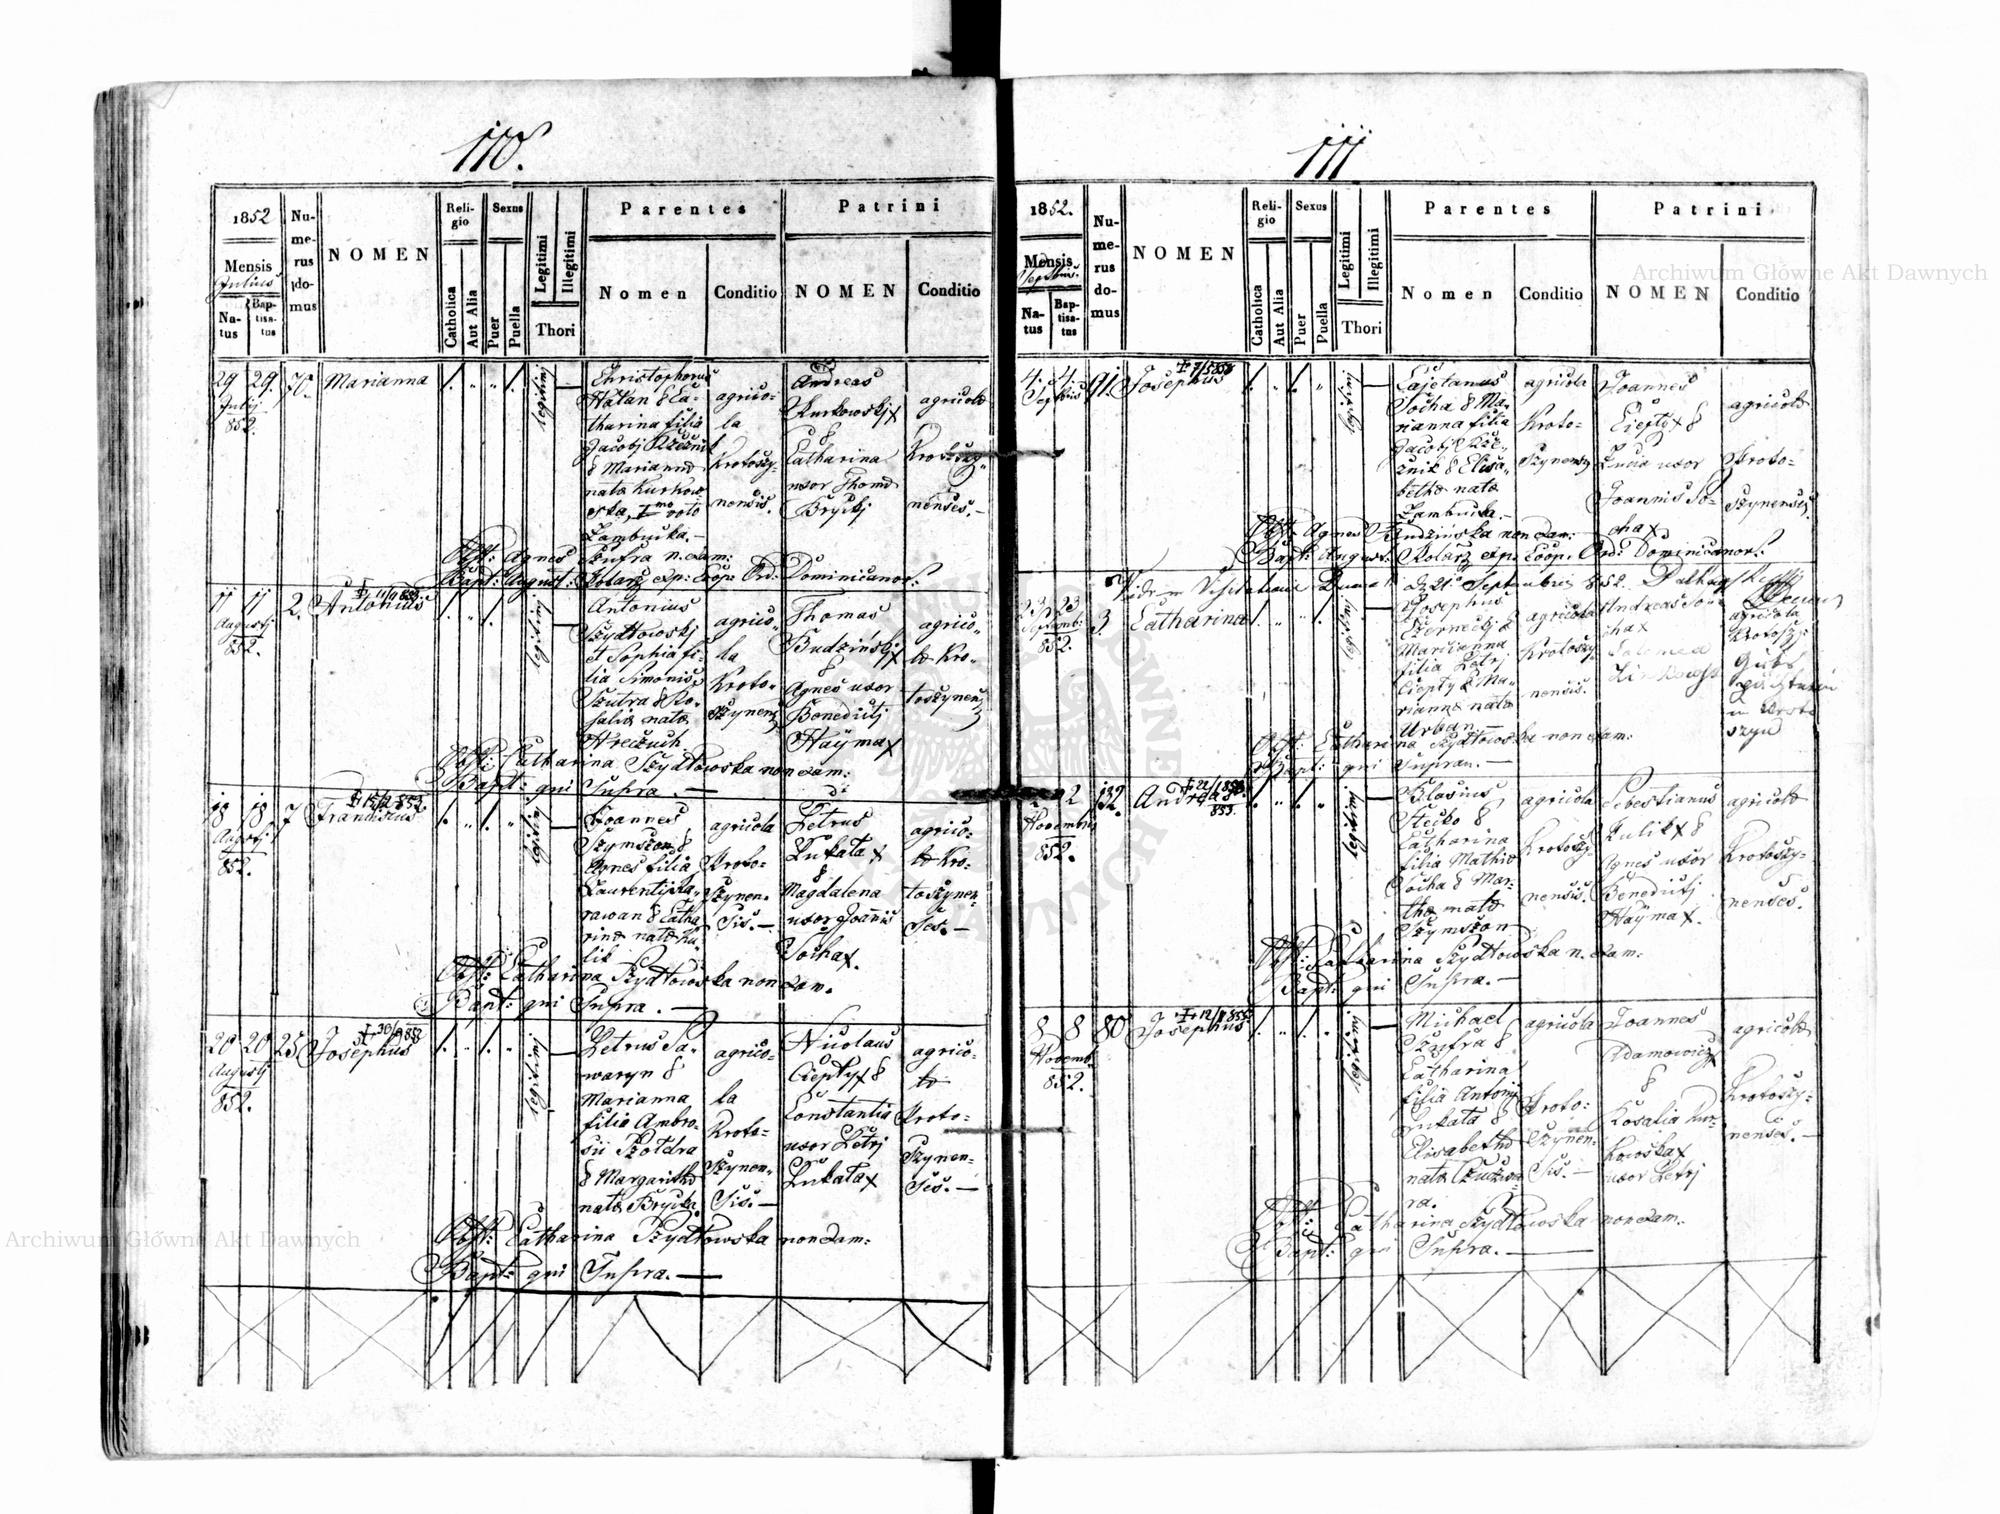 110.
1852
Mensis
Julius
Na-
tus
Bap-
tisa-
tus
Nu-
me-
rus
do-
mus
NOMEN
Reli-
gio
Catholica
Aut Alia
Sexus
Puer
Puella
Legitimi
Illegitimi
Thori
Parentes
Nomen
Conditio
Patrini
NOMEN
Conditio
29 29. 70. Marianna
Julij
852.
legitimj
Christophorus
Hatan & Ca-
tharina filia
Jacobj
& Marianna
nata Kurkow-
ska, voto
Zambucka.-
agrico-
la
Krotoszy-
nensis.
Andreas
Kurkowskj x
&
Catharina
uxor Thoma
Bryckj
agricola
Krotoszy-
nenses.-
Obst: Agnes Szufra n. exam:
Bapt: August: Kolarz exp: Coop: Ord: Dominicanor:
11 11 2. Antonius
Augustj
852.
legitimj
Antonius
Szydłowskj
et Sophia fi-
lia Simonis
Szutra & Ro-
salia nata
Hreczuch
agrico-
la
Kroto-
szynens
Thomas
Budzińskj x
&
Agnes uxor
Benedictj
Hayma x
agrico-
la Kro-
toszynens
Obst: Catharina Szydłowska non exam:
Bapt: qui Supra. —
18 18 7 Franciscus
Augustj
852.
legitimj
Joannes
Szymszon &
Agnes filia
Laurentij Ka-
rawan & Catha
rina nata Ku-
lik
agricola
Kroto-
szynen-
sis.-
Petrus
Łukata x
&
Magdalena
uxor Joannis
Socha x.
agrico-
la Kro-
toszynen-
ses.-
Obst: Catharina Szydłowska non exam.
Bapt: qui Supra. —
20 20 25 Josephus
Augustj
852.
legitimj
Petrus Sa-
waryn &
Marianna
filia Ambro-
sii Szoldra
& Margaritha
nata Brycka.
agrico-
la
Kroto-
szynen-
sis.-
Nicolaus
Ciepły x &
Constantia
uxor Petrj
Łukata x
agrico-
la
Kroto-
szynen-
ses.-
Obst: Catharina Szydłowska non exam:
Bapt: qui Supra. —
111
1852.
Mensis
Septbris.
Na-
tus
Bap-
tisa-
tus
Nu-
me-
rus
do-
mus
NOMEN
Reli-
gio
Catholica
Aut Alia
Sexus
Puer
Puella
Legitimi
Illegitimi
Thori
Parentes
Nomen
Conditio
Patrini
NOMEN
Conditio
4. 4 91. Josephus
852.
legitimj
Cajetanus
Socha & Ma-
rianna filia
Jacobj Rze-
znik & Elisa-
betha nata
Zambucka.-
agricola
Kroto-
szynensis
Joannes
Ciepły x &
Lucia uxor
Joannis So-
cha x
agricola
Kroto-
szynenses.
Obst: Agnes Budzińska non exam:
Bapt: August: Kolarz exp: Coop: Ord: Dominicanor:
Vidi in Visitatione 21 Septembris 852.
23 23 3. Catharina
Septemb:
852.
legitimj
Josephus
Czerneckj &
Marianna
filia Petrj
Ciepły & Ma-
rianna nata
Urban —
agricola
Krotoszy-
nensis.
Andreas So-
cha x
Salomea
agricola
Krotoszy:
Obst: Catharina Szydłowska non exam:
Bapt: qui Supra. —
2 132. Andreas
Novembris
852.
legitimj
Blasius
Stecko &
Catharina
filia Mathia
Socha & Mar-
tha nata
Szymszon
agricola
Krotoszy-
nensis.
Sebestianus
Kulik x &
Agnes uxor
Benedictj
Hayma x.
agricola
Krotoszy-
nenses.
Obst: Catharina Szydłowska n. exam:
Bapt: qui Supra. —
8 8 80 Josephus
Novemb:
852.
legitimj
Michael
Szufra &
Catharina
filia Antonj
Łukata &
Elisabetha
nata
agricola
Kroto-
szynen-
sis.-
Joannes
Adamowicz x
&
Rosalia Kur-
kowska x
uxor Petrj
agricola
Krotoszy-
nenses.-
Obst: Catharina Szydłowska non exam.
Bapt: qui Supra. —
Archiwum Główne Akt Dawnych
Archiwum Główne Akt Dawnych